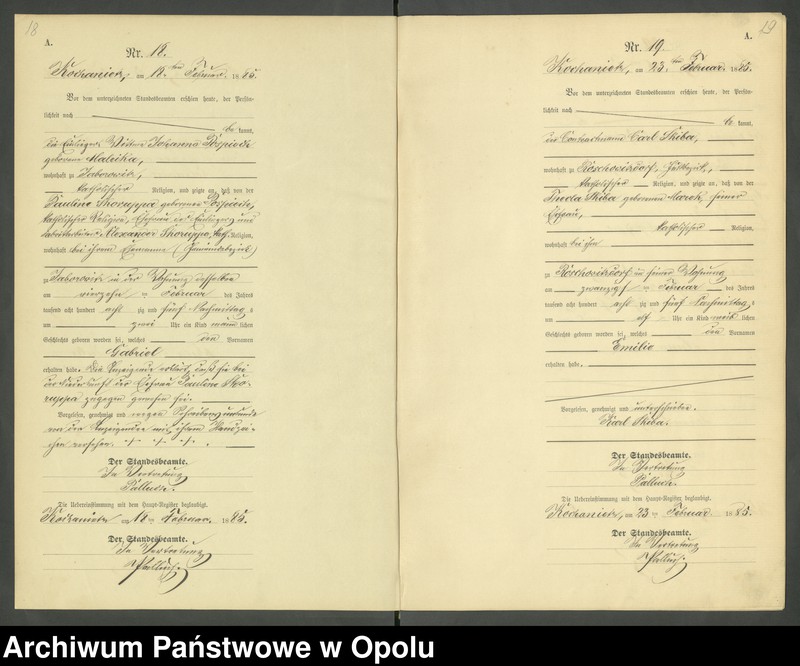 18
A.
Nr. 18.
Kochanietz, am 18ten Februar 1885.
Vor dem unterzeichneten Standesbeamten erschien heute, der Persön-
lichkeit nach
be kannt,
die Einlieger Wittwe Johanna
geborene
wohnhaft zu Jaborowitz,
katholischer Religion, und zeigte an, daß von der
Pauline Skoruppa geborenen
katholischer Religion, Ehefrau des Einliegers und
Alexander Skoruppa, kath. Religion,
wohnhaft bei ihrem Ehemanne
zu Jaborowitz in der Wohnung desselben
am vierzehn ten Februar des Jahres
tausend acht hundert acht zig und fünf Nachmittags
um zwei Uhr ein Kind männlichen
Geschlechts geboren worden sei, welches den Vornamen
Gabriel
erhalten habe. Die Anzeigende erklärt, daß sie bei
der Niederkunft der Ehefrau Pauline Sko-
ruppa zugegen gewesen sei.
Vorgelesen, genehmigt und wegen Schreibensunkunde
von der Anzeigenden mit ihrem Handzei-
chen versehen. -/- -/- -/- .
Der Standesbeamte.
In Vertretung
Die Uebereinstimmung mit dem Haupt-Register beglaubigt.
Kochanietz, am ten Februar 1885.
Der Standesbeamte.
In Vertretung
19
A.
Nr. 19.
Kochanietz, am 23ten Februar 1885.
Vor dem unterzeichneten Standesbeamten erschien heute, der Persön-
lichkeit nach
be kannt,
der Carl Skiba,
wohnhaft zu
katholischer Religion, und zeigte an, daß von der
Skiba geborenen seiner
Ehefrau,
katholischer Religion,
wohnhaft bei ihm
zu in seiner Wohnung
am zwanzigsten Februar des Jahres
tausend acht hundert acht zig und fünf Nachmittags
um elf Uhr ein Kind weiblichen
Geschlechts geboren worden sei, welches den Vornamen
Emilie
erhalten habe.
Vorgelesen, genehmigt und unterschrieben.
Karl Skiba.
Der Standesbeamte.
In Vertretung
Die Uebereinstimmung mit dem Haupt-Register beglaubigt.
Kochanietz, am 23ten Februar 1885.
Der Standesbeamte.
In Vertretung
Archiwum Państwowe w Opolu